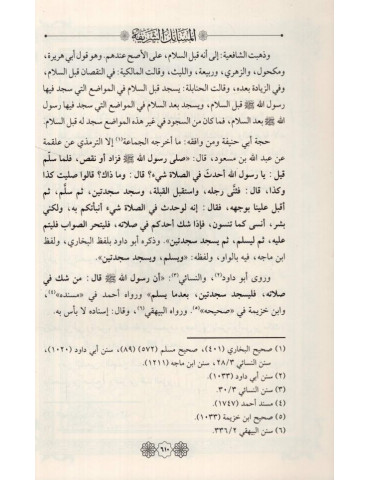 المسائل الشريفة
وذهبت الشافعية: إلى أنه قبل السلام، على الأصح عندهم. وهو قول أبي هريرة،
ومكحول، والزهري، وربيعة، والليث، وقالت المالكية: في النقصان قبل السلام،
وفي الزيادة بعده، وقالت الحنابلة: يسجد قبل السلام في المواضع التي سجد فيها
رسول الله ﷺ قبل السلام، ويسجد بعد السلام في المواضع التي سجد فيها رسول
الله ﷺ بعد السلام، فما كان من السجود في غير هذه المواضع سجد له قبل السلام.
حجة أبي حنيفة ومن وافقه: ما أخرجه الجماعة(١) إلا الترمذي عن علقمة
عن عبد الله بن مسعود، قال: «صلى رسول الله ﷺ فزاد أو نقص، فلما سلّم
قيل: يا رسول الله أحدثَ في الصلاة شيء؟ قال: وما ذاك؟ قالوا صليت كذا
وكذا، قال: فثنّى رجله، واستقبل القبلة، وسجد سجدتين، ثم سلّم، ثم
أقبل علينا بوجهه، فقال: إنه لوحدث في الصلاة شيء أنبأتكم به، ولكني
بشر، أنسى كما تنسون، فإذا شك أحدكم في صلاته، فليتحر الصواب فليتم
عليه، ثم ليسلم، ثم يسجد سجدتين». وذكره أبو داود بلفظ البخاري، ولفظ
ابن ماجه، فيه بالواو، ولفظه: «ويسلم، ويسجد سجدتين».
وروى أبو داود(٢)، والنسائي(٣): «أن رسول الله ﷺ قال: من شك في
صلاته، فليسجد سجدتين، بعدما يسلم» ورواه أحمد في «مسنده»(٤)،
وابن خزيمة في «صحيحه»(٥). ورواه البيهقي(٦)، وقال: إسناده لا بأس به.
(١) صحيح البخاري (٤٠١)، صحيح مسلم (٥٧٢) (٨٩)، سنن أبي داود (١٠٢٠)،
سنن النسائي ٢٨/٣، سنن ابن ماجه (١٢١١).
(٢) سنن أبي داود (١٠٣٣).
(٣) سنن النسائي ٣٠/٣.
(٤) مسند أحمد (١٧٤٧).
(٥) صحيح ابن خزيمة (١٠٣٣).
(٦) سنن البيهقي ٣٣٦/٢.
٦١٠